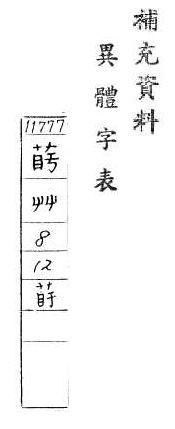 補充資料
異體字表
11777
艸
8
12